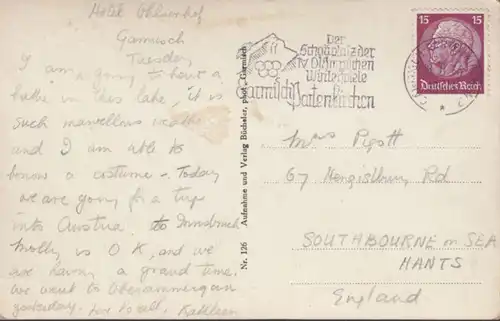 Hotel Ohlsenhof
Garmisch
Tuesday
I am a going to have a
bathe in this lake, it is
such marvellous weather
and I am able to
borrow a costume - Today
we are going for a trip
into Austria to Innsbruck
Molly is O K, and we
are having a grand time.
We went to Oberammergau
yesterday. Love to all. Kathleen
Nr. 126 Aufnahme und Verlag Böcheler, phot., Garmisch
Der
Schauplatz der
IV. Olympischen
Winterspiele
Garmisch-
Partenkirchen
15 15
Deutsches Reich
Mrs Pigott
67 Hengistbury Rd
SOUTHBOURNE on SEA
HANTS
England